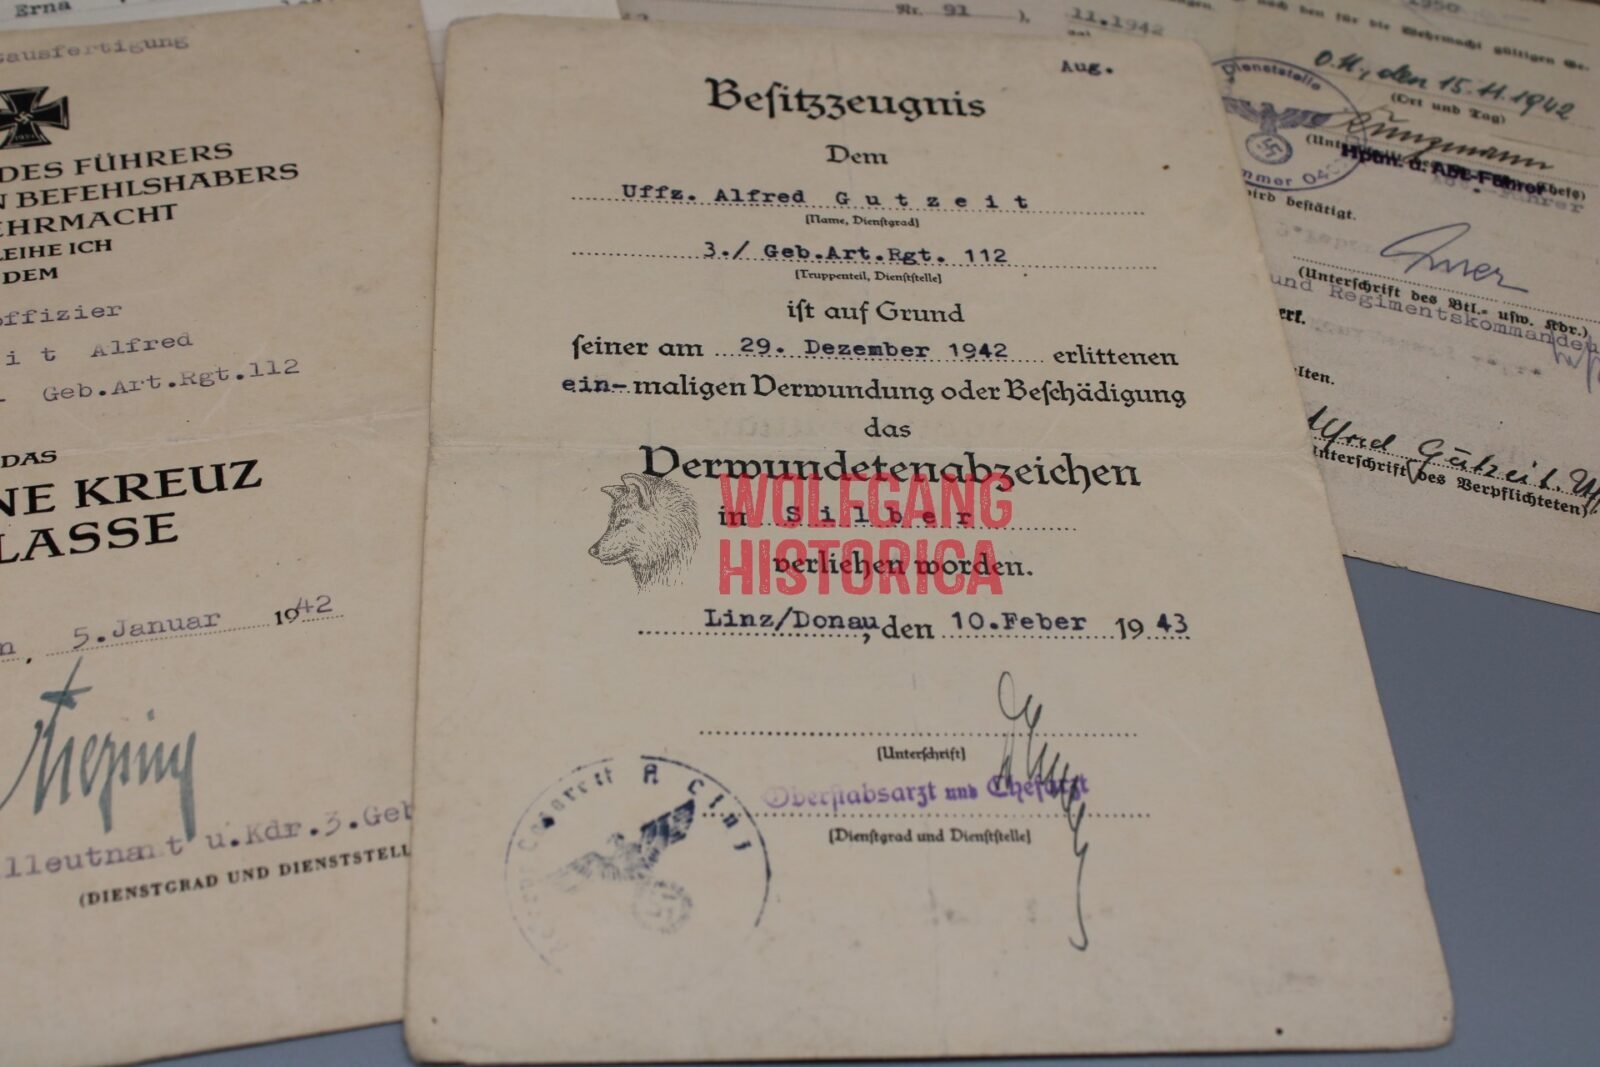 Erna
Nr. 91 ),
11.1942
1950
ausfertigung
DES FÜHRERS
BEFEHLSHABERS
EHRMACHT
LEIHE ICH
DEM
offizier
i t Alfred
Geb.Art.Rgt.112
DAS
NE KREUZ
LASSE
5.Januar 1942
lleutnant u.Kdr.3.Geb
(DIENSTGRAD UND DIENSTSTELL
Aug.
Besitzzeugnis
Dem
Uffz. Alfred G u t z e i t
(Name, Dienstgrad)
3./ Geb.Art.Rgt. 112
(Truppenteil, Dienststelle)
ist auf Grund
seiner am 29. Dezember 1942 erlittenen
ein- maligen Verwundung oder Beschädigung
das
Verwundetenabzeichen
in S i l b e r
verliehen worden.
Linz/Donau, den 10.Feber 1943
(Unterschrift)
Oberstabsarzt und Chefarzt
(Dienstgrad und Dienststelle)
WOLFGANG
HISTORICA
nach den für die Wehrmacht gültigen Be-
O.U., den 15.11.1942
(Ort und Tag)
Dienststelle
Hptm. u. Abt.-Führer
wird bestätigt.
(Unterschrift des Btl.- usw. Kdr.)
und Regimentskommandeu
Alfred Gutzeit, Uf
Unterschrift des Verpflichteten)